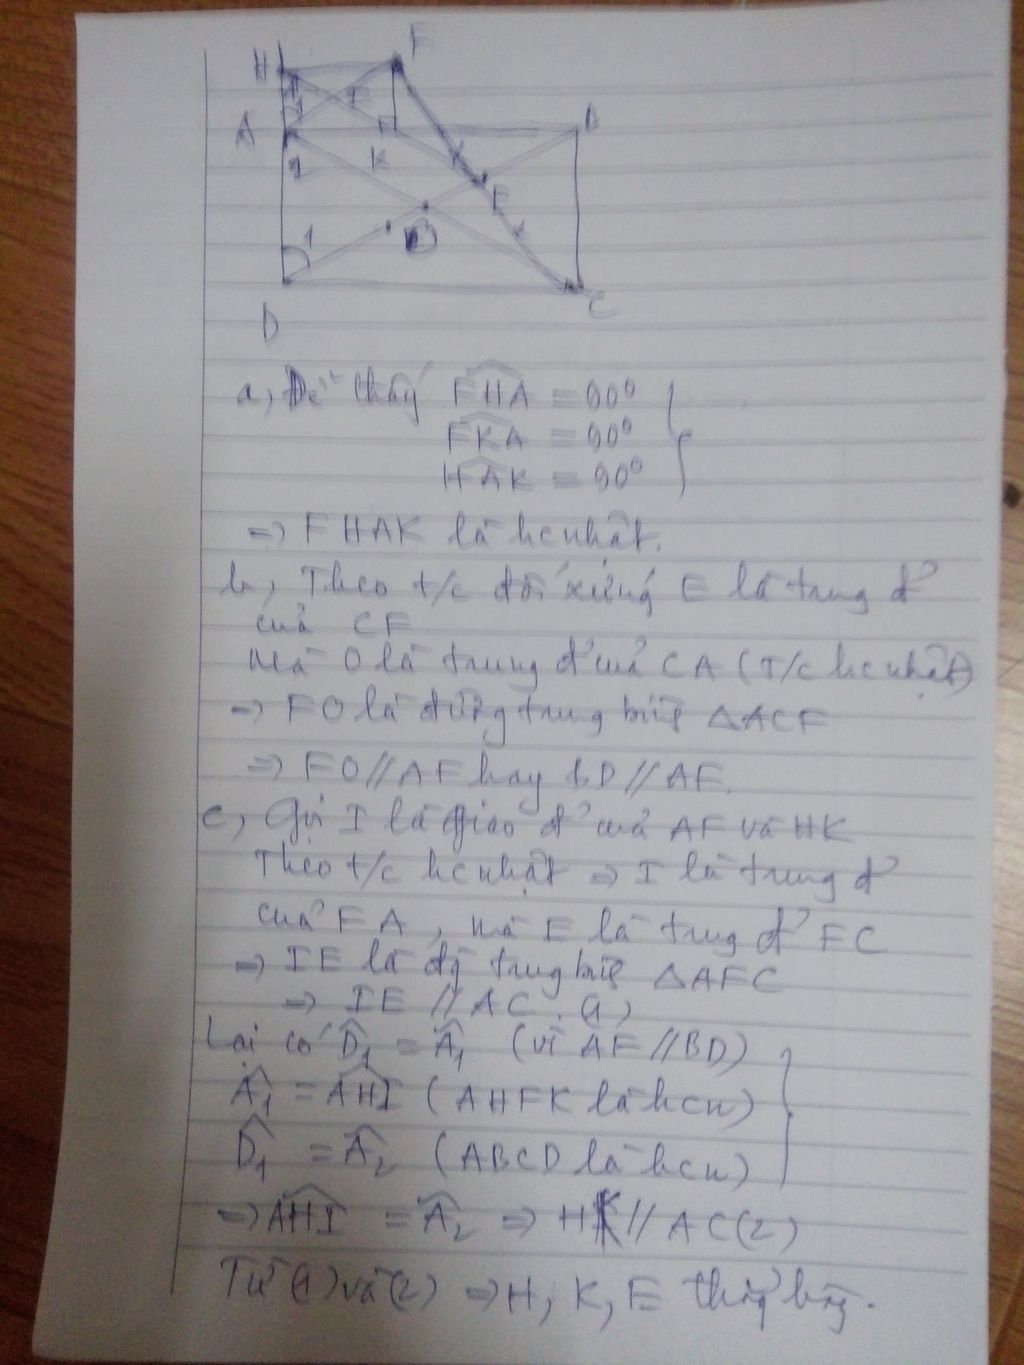 H F
A I B
1 K E
2 O
1
D C
a, Dễ thấy FHA = 90°
FKA = 90°
HAK = 90°
=> FHAK là hcnhật.
b, Theo t/c đối xứng E là trung đ'
của CF
Mà O là trung đ' của CA (T/c hcnhật)
=> EO là đường trung bình △ACF
=> EO // AF hay BD // AF.
c, Gọi I là giao đ' của AF và HK
Theo t/c hcnhật => I là trung đ'
của FA, mà E là trung đ' FC
=> IE là đg trung bình △AFC
=> IE // AC. (1)
Lại có D₁ = A₁ (vì AF // BD)
A₁ = AHI (AHFK là hcn)
D₁ = A₂ (ABCD là hcn)
=> AHI = A₂ => HK // AC (2)
Từ (1) và (2) => H, K, E thẳng hàng.